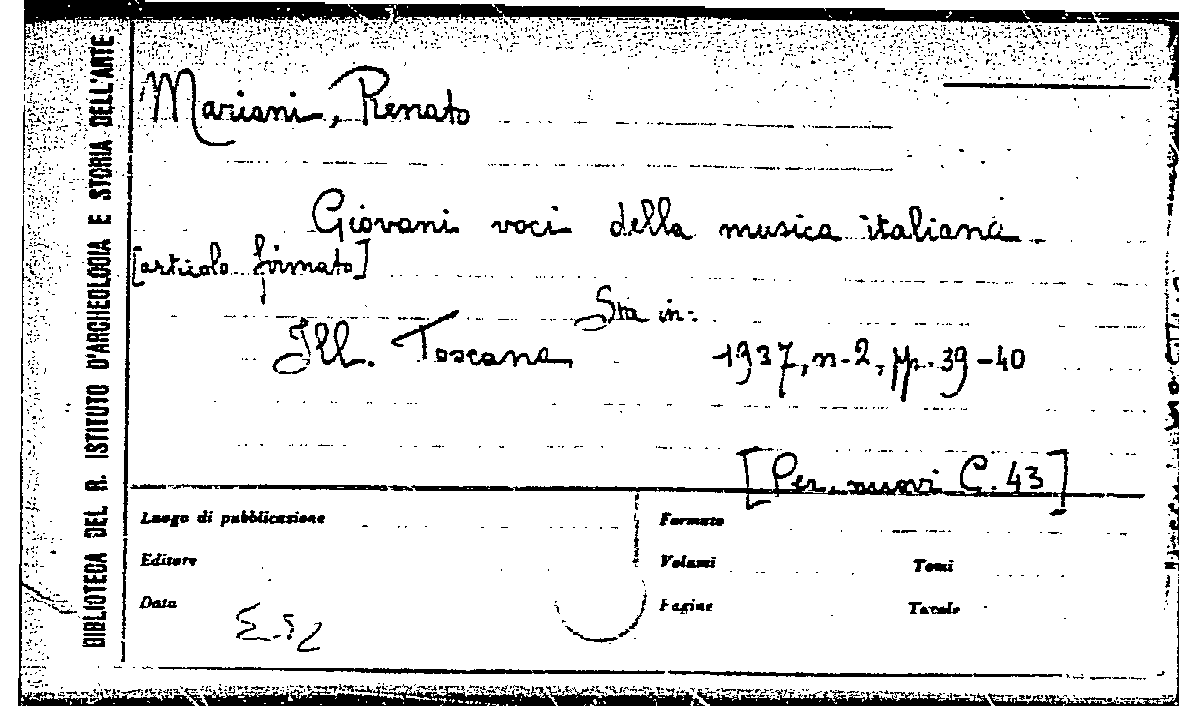 BIBLIOTECA DEL R. ISTITUTO D'ARCHEOLOGIA E STORIA DELL'ARTE
Mariani, Renato
Giovani voci della musica italiana
[articolo firmato]
Sta in:
Ill. Toscana 1937, n. 2, pp. 39-40
[Per. nuovi C. 43]
Luogo di pubblicazione Formato
Editore Volumi Tomi
Data Pagine Tavole